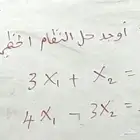 أوجد حل النظام الخطي
3x₁ + x₂ =
4x₁ - 3x₂ =